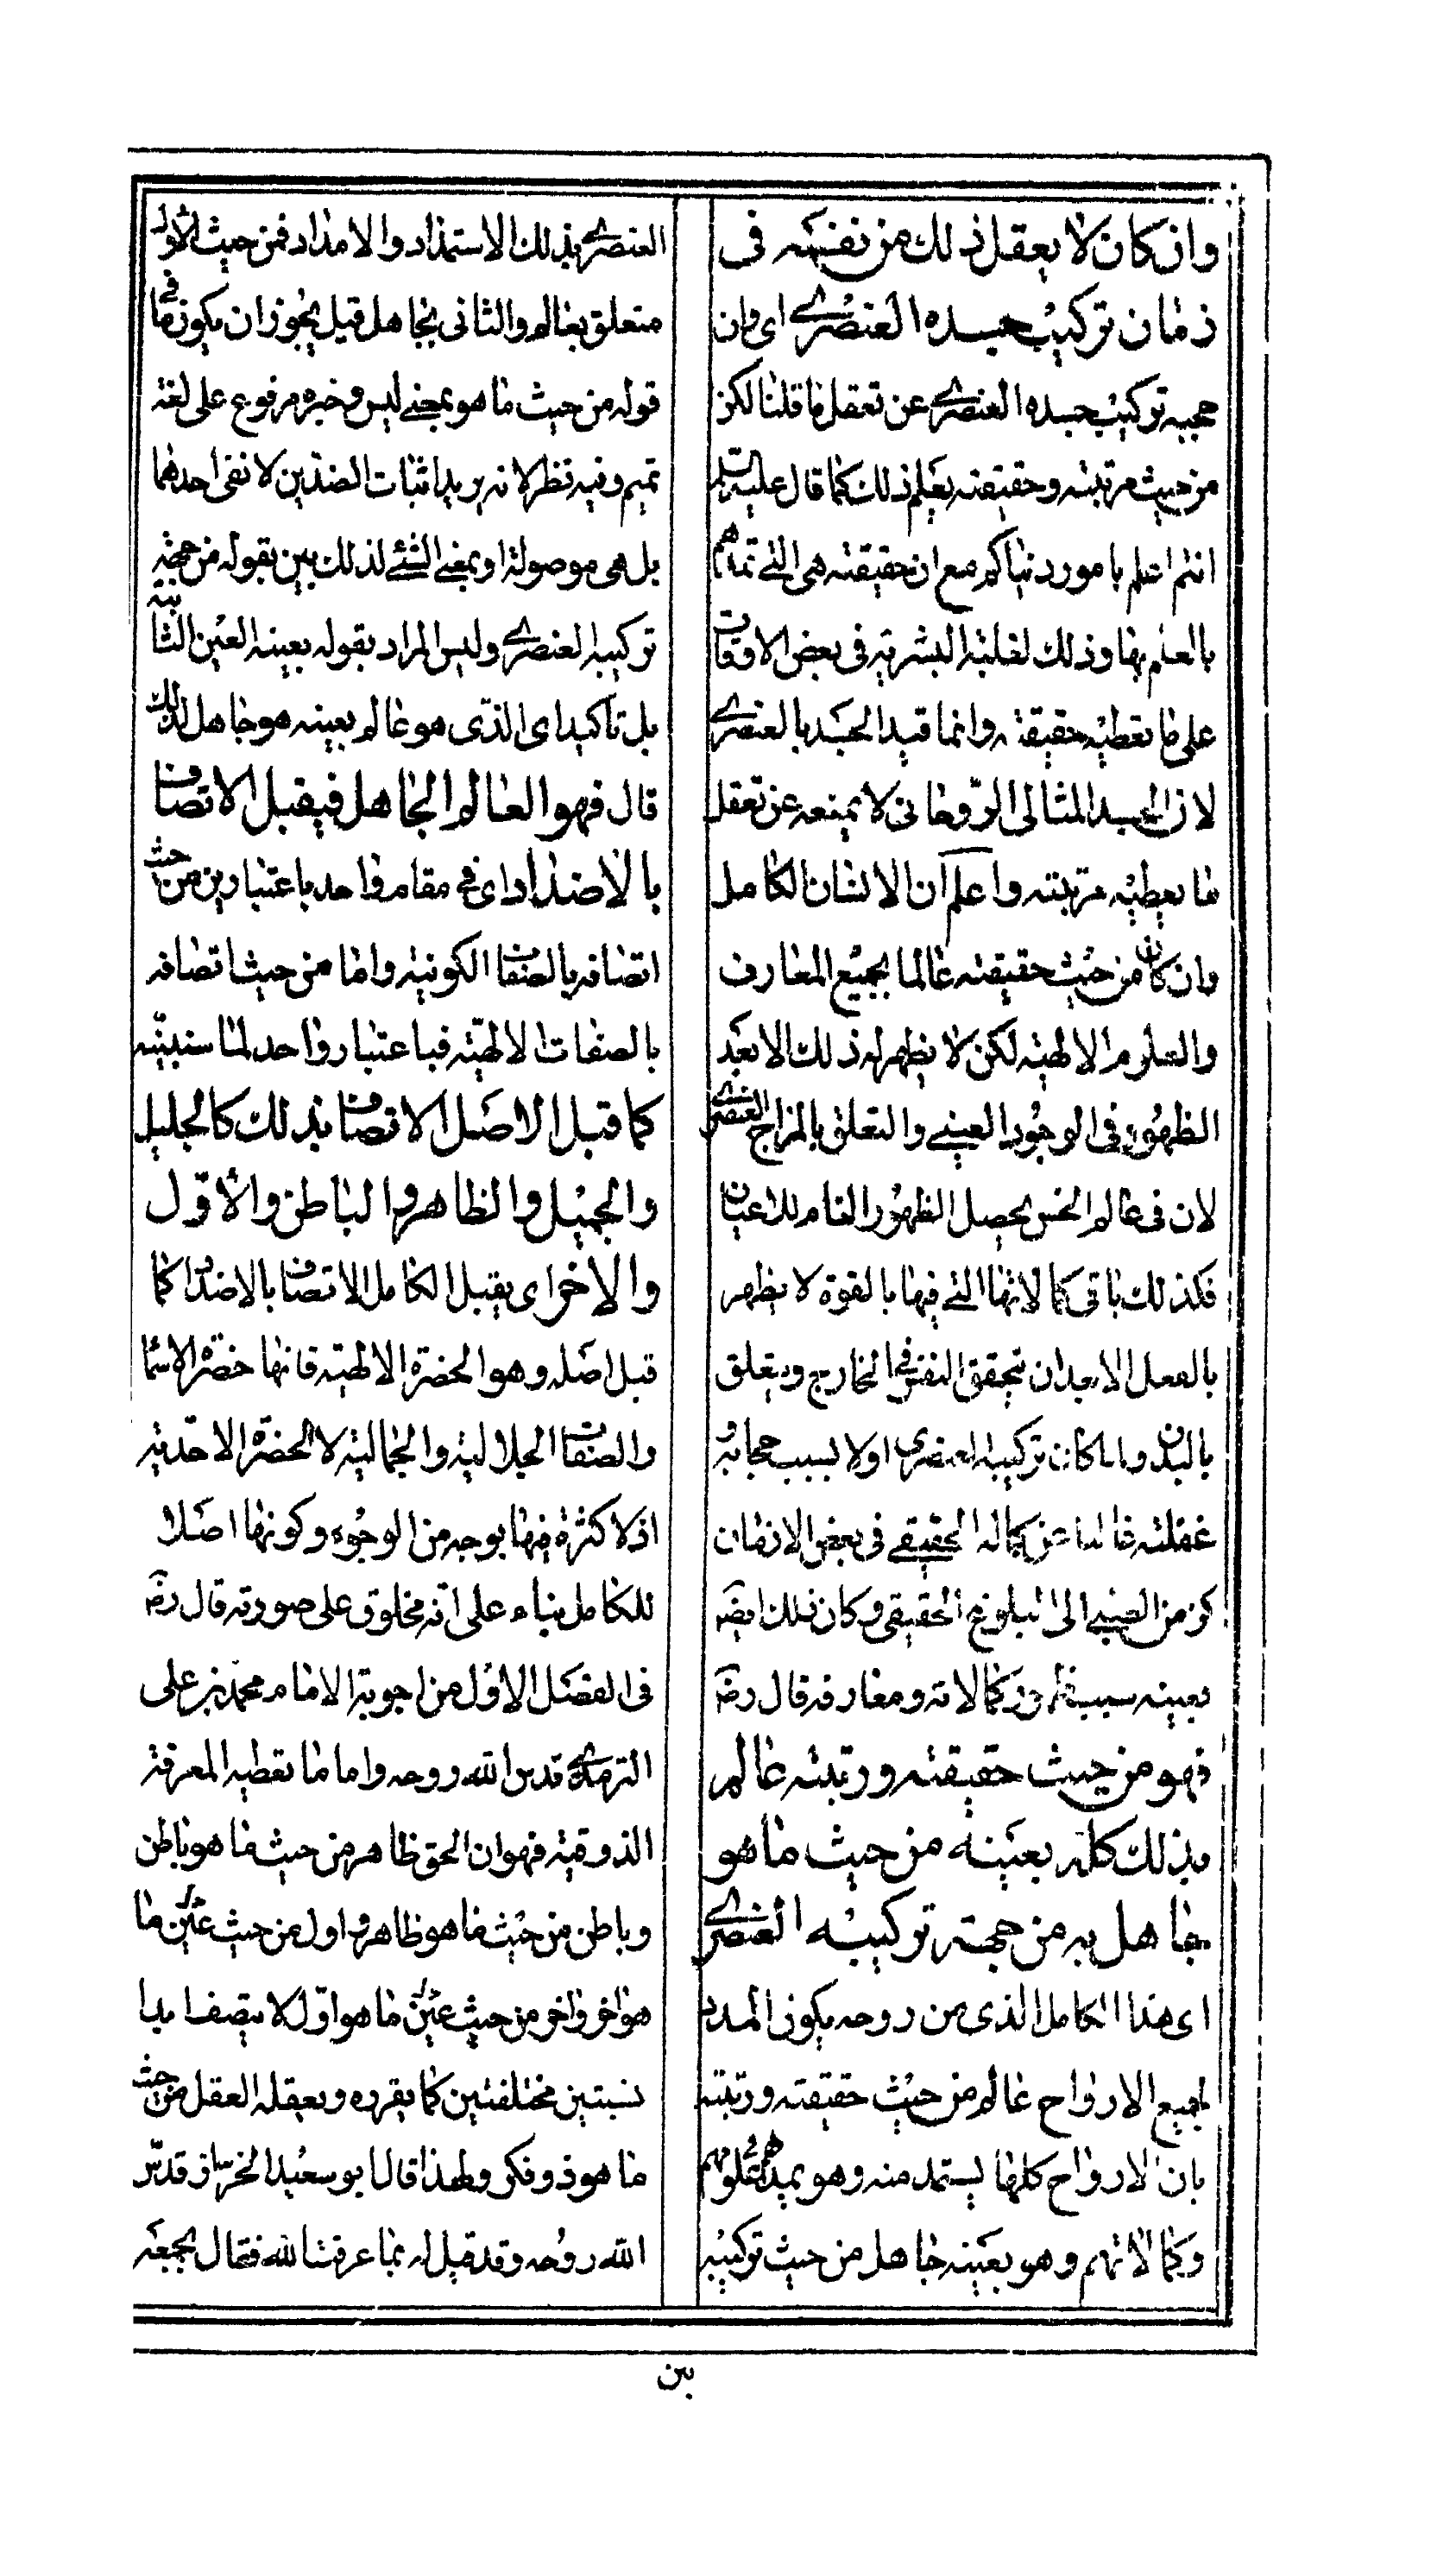 وان كان لا يعقل ذلك من نفسه فى
زمان تركيب جسده العنصرى اى وان
حجبه تركيب جسده العنصرى عن تعقل ما قلنا لكن
من حيث مرتبته وحقيقته يعلم ذلك كما قال عليه السلم
انتم اعلم بامور دنياكم مع ان حقيقته هى التى تمدهم
بالعلم بها وذلك لغلبة البشرية فى بعض الاوقات
على ما تعطيه حقيقته وانما قيد الجسد بالعنصرى
لان الجسد المثالى الروحانى لا يمنعه عن تعقل
ما يعطيه مرتبته واعلم ان الانسان الكامل
وان كان من حيث حقيقته عالما بجميع المعارف
والعلوم الالهية لكن لا يظهر له ذلك الا بعد
الظهور فى الوجود العينى والتعلق بالمزاج العنصرى
لان فى عالم الحس يحصل الظهور التام للاعيان
فكذلك باقى كمالاتها التى فيها بالقوة لا يظهر
بالفعل الا بعد ان تحقق النفس فى الخارج ويتعلق
بالبدن وانما كان تركيبه العنصرى اولا بسبب حجابه و
غفلته عن كماله الحقيقى فى بعض الازمان
كزمن الصبى الى البلوغ الحقيقى وكان ذلك ايضا
بعينه سبب ظهور كمالاته ومعارفه قال رض
فهو من حيث حقيقته ورتبته عالم
بذلك كله بعينه من حيث ما هو
جاهل به من جهة تركيبه العنصرى
اى هذا الكامل الذى من روحه يكون المدد
لجميع الارواح عالم من حيث حقيقته ورتبته
بان الارواح كلها يستمد منه وهو يمدهم فى علومهم
وكمالاتهم وهو بعينه جاهل من حيث تركيبه
العنصرى بذلك الاستمداد والامداد فمن حيث الاول
متعلق بعالم والثانى بجاهل قيل يجوز ان يكون ما فى
قوله من حيث ما هو بمعنى ليس وخبره مرفوع على لغة
تميم وفيه نظر لانه يريد اثبات الضدين لا نفى احدهما
بل هى موصولة او بمعنى الشئ لذلك بين بقوله من جهة
تركيبه العنصرى وليس المراد بقوله بعينه العين الثابتة
بل تأكيد اى الذى هو عالم بعينه هو جاهل لذلك
قال فهو العالم الجاهل فيقبل الاتصاف
بالاضداد اى فى مقام واحد باعتبارين من حيث
اتصافه بالصفات الكونية واما من حيث اتصافه
بالصفات الالهية فباعتبار واحد لما سنبينه
كما قبل الاصل الاتصاف بذلك كالجليل
والجميل والظاهر والباطن والأول
والاخر اى يقبل الكامل الاتصاف بالاضداد كما
قبل اصله وهو الحضرة الالهية فانها حضرة الاسما
والصفات الجلالية والجمالية لا الحضرة الاحدية
اذ لا كثرة فيها بوجه من الوجوه وكونها اصلا
للكامل بناء على انه مخلوق على صورته قال رض
فى الفصل الاول من اجوبة الامام محمد بن على
الترمذى قدس الله روحه واما ما تعطيه المعرفة
الذوقية فهو ان الحق ظاهر من حيث ما هو باطن
وباطن من حيث ما هو ظاهر واول من حيث عين ما
هو اخر واخر من حيث عين ما هو اول لا يتصف ابدا
بنسبتين مختلفتين كما يقرره ويعقله العقل من حيث
ما هو ذو فكر ولهذا قال ابو سعيد الخراز قدس
الله روحه وقد قيل له بما عرفت الله فقال بجمعه
بين